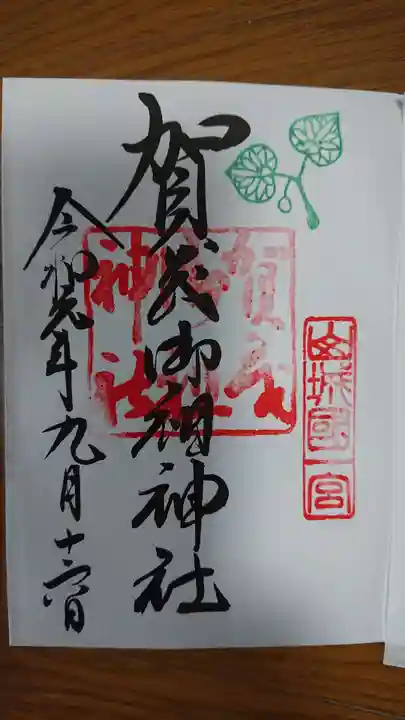 山城國一宮
賀茂御祖神社
賀茂御祖神社
令和元年九月十六日